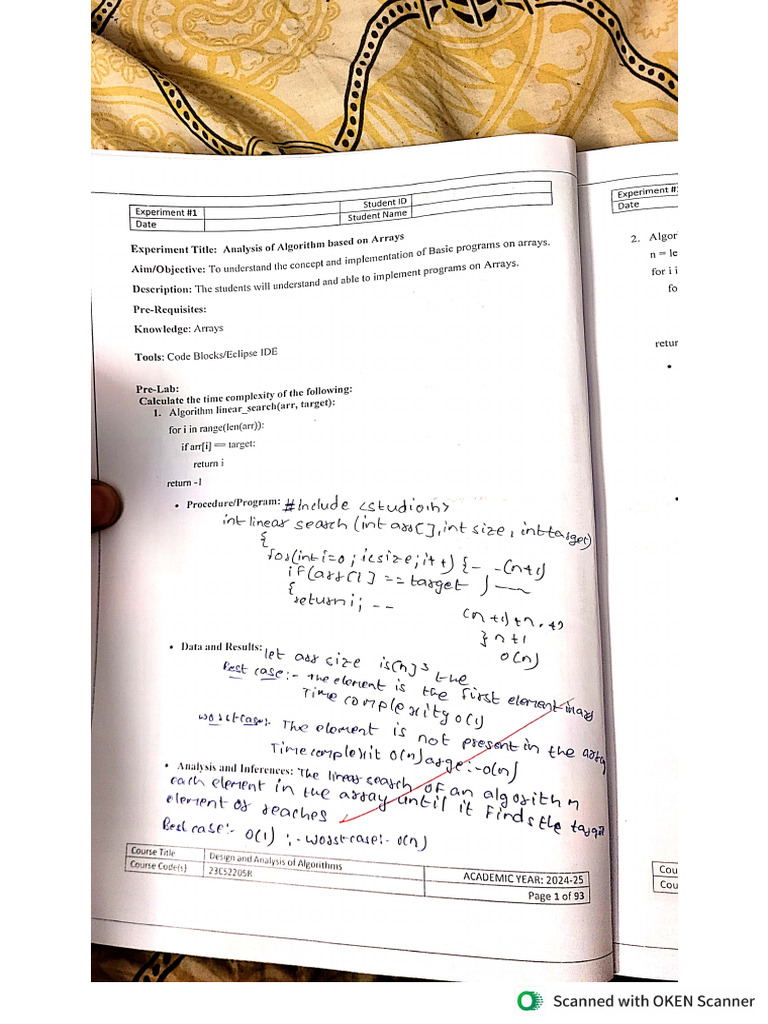 Experiment #1 Student ID
Date Student Name
Experiment Title: Analysis of Algorithm based on Arrays
Aim/Objective: To understand the concept and implementation of Basic programs on arrays.
Description: The students will understand and able to implement programs on Arrays.
Pre-Requisites:
Knowledge: Arrays
Tools: Code Blocks/Eclipse IDE
Pre-Lab:
Calculate the time complexity of the following:
1. Algorithm linear_search(arr, target):
for i in range(len(arr)):
if arr[i] == target:
return i
return -1
• Procedure/Program: #Include <studio.h>
int linear search (int arr[], int size, int target)
{
for(int i=0; i<size; i++) { - - (n+1)
if (arr[i] == target )
{
return i; --
(n+1)+n
} n+1
O(n)
• Data and Results: let arr size is [n] the
Best case:- The element is the first element in arr
Time complexity O(1)
worst case:- The element is not present in the array
Time complexit O(n) avge:-O(n)
• Analysis and Inferences: The linear search of an algorithm
each element in the array until it finds the target
element or reaches
Best case:- O(1) :- worst case:- O(n)
Course Title Design and Analysis of Algorithms ACADEMIC YEAR: 2024-25
Course Code(s) 23CS2205R Page 1 of 93
Experiment #
Date
2. Algor
n = le
for i i
fo
retur
Cou
Cou
Scanned with OKEN Scanner